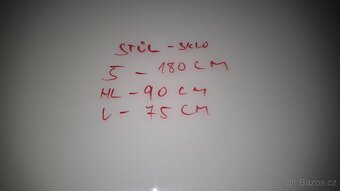 STŮL - SKLO
Š - 180 CM
HL - 90 CM
V - 75 CM
Bazos.cz